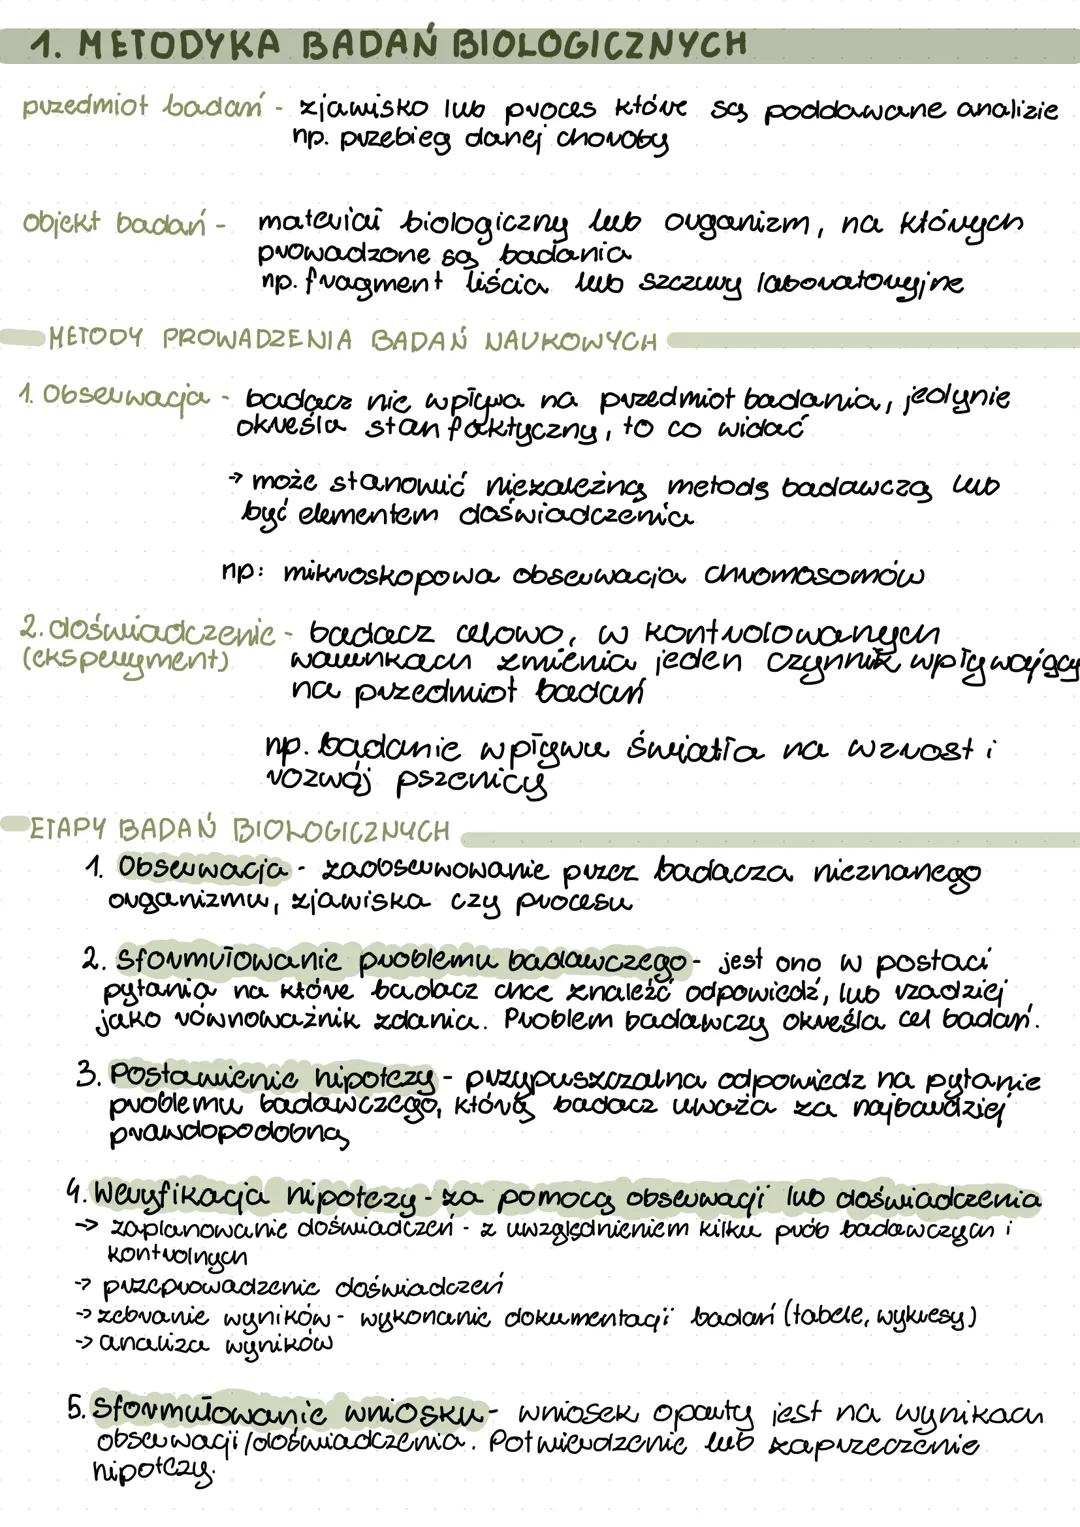 1. METODYKA BADAŃ BIOLOGICZNYCH
przedmiot badań - zjawisko lub proces które są poddawane analizie
np. przebieg danej choroby
objekt badań - materiał biologiczny lub organizm, na których
prowadzone są badania
np. fragment liścia lub szczury laboratoryjne
METODY PROWADZENIA BADAŃ NAUKOWYCH
1. Obserwacja - badacz nie wpływa na przedmiot badania, jedynie
określa stan faktyczny, to co widać
→ może stanowić niezależną metodę badawczą lub
być elementem doświadczenia
np: mikroskopowa obserwacja chromosomów
2. doświadczenie - badacz celowo, w kontrolowanych
(eksperyment) warunkach zmienia jeden czynnik wpływający
na przedmiot badań
np. badanie wpływu światła na wzrost i
rozwój pszenicy
ETAPY BADAŃ BIOLOGICZNYCH
1. Obserwacja - zaobserwowanie przez badacza nieznanego
organizmu, zjawiska czy procesu
2. Sformułowanie problemu badawczego - jest ono w postaci
pytania na które badacz chce znaleźć odpowiedź, lub rzadziej
jako równoważnik zdania. Problem badawczy określa cel badań.
3. Postawienie hipotezy - przypuszczalna odpowiedz na pytanie
problemu badawczego, którą badacz uważa za najbardziej
prawdopodobną
4. Weryfikacja hipotezy - za pomocą obserwacji lub doświadczenia
→ zaplanowanie doświadczeń - z uwzględnieniem kilku prób badawczych i
kontrolnych
→ przeprowadzenie doświadczeń
→ zebranie wyników - wykonanie dokumentacji badań (tabele, wykresy)
→ analiza wyników
5. Sformułowanie wniosku - wniosek oparty jest na wynikach
obserwacji/doświadczenia. Potwierdzenie lub zaprzeczenie
hipotezy.